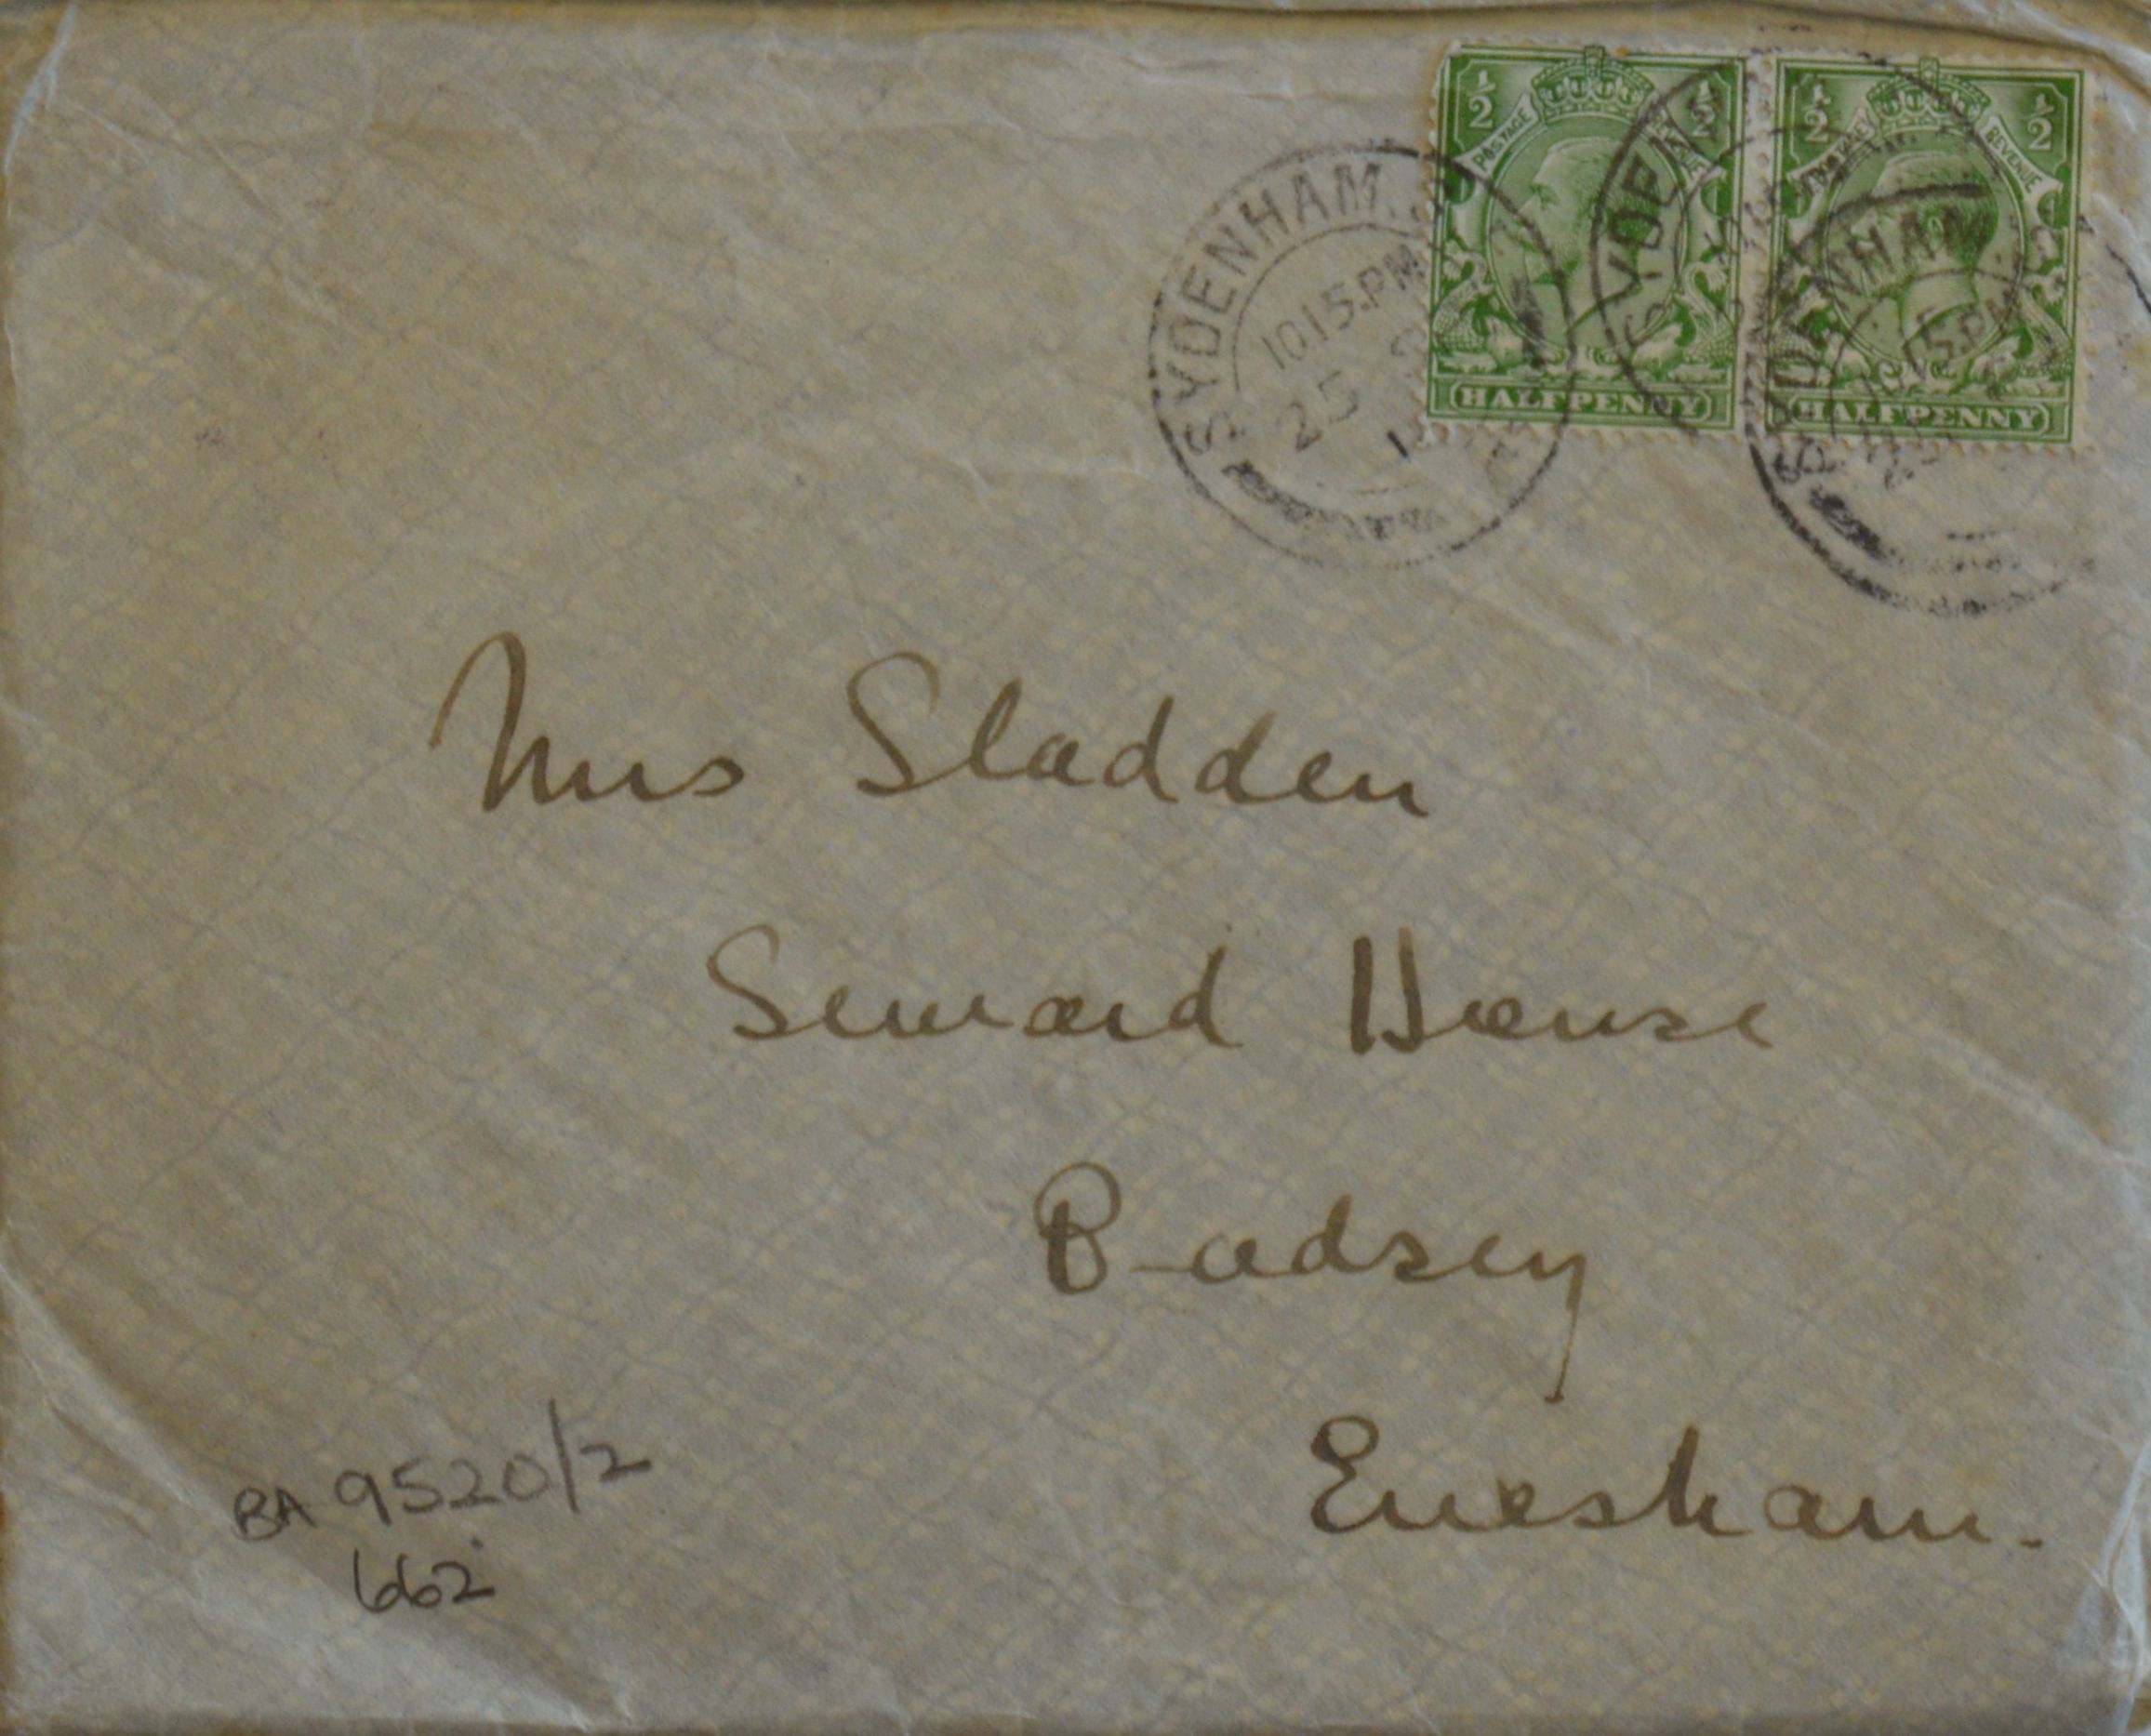 ½ POSTAGE ½
HALFPENNY
½ REVENUE ½
HALFPENNY
SYDENHAM.
10 15.PM
25
YDEN
SYDENHAM
10 15.PM
Mrs Sladden
Seward House
Badsey
Evesham.
BA 9520/2
662